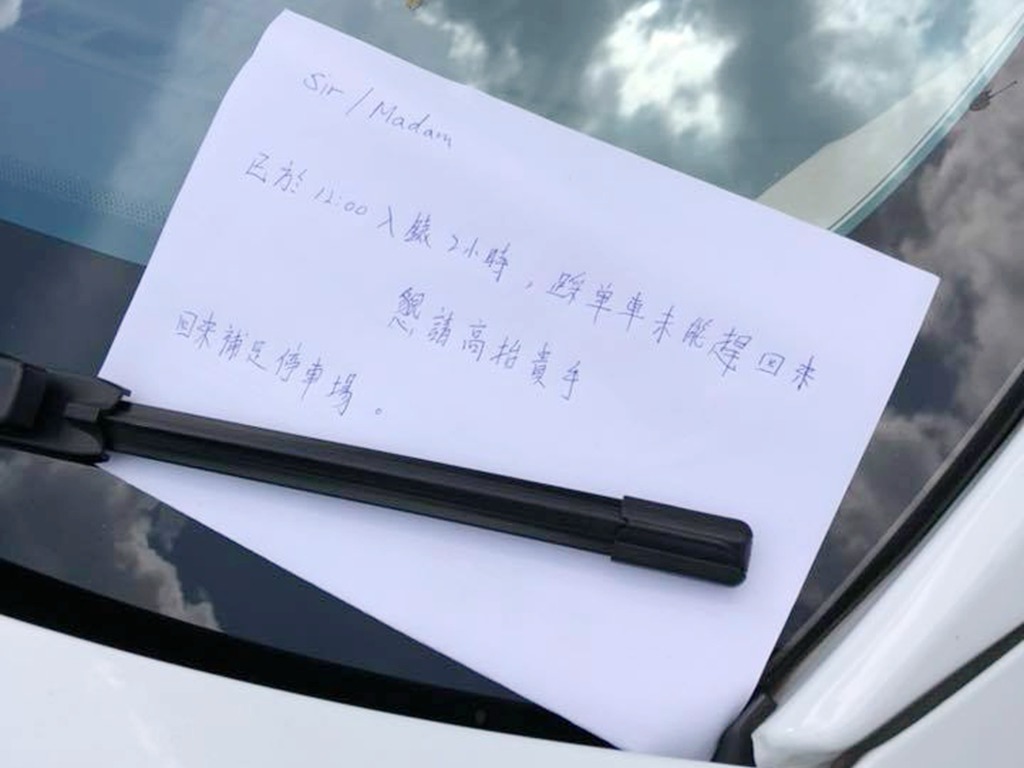 Sir / Madam
已於 12:00 入錶 2小時，踩单車未能趕回來
回來補足停車場。
懇請高抬貴手